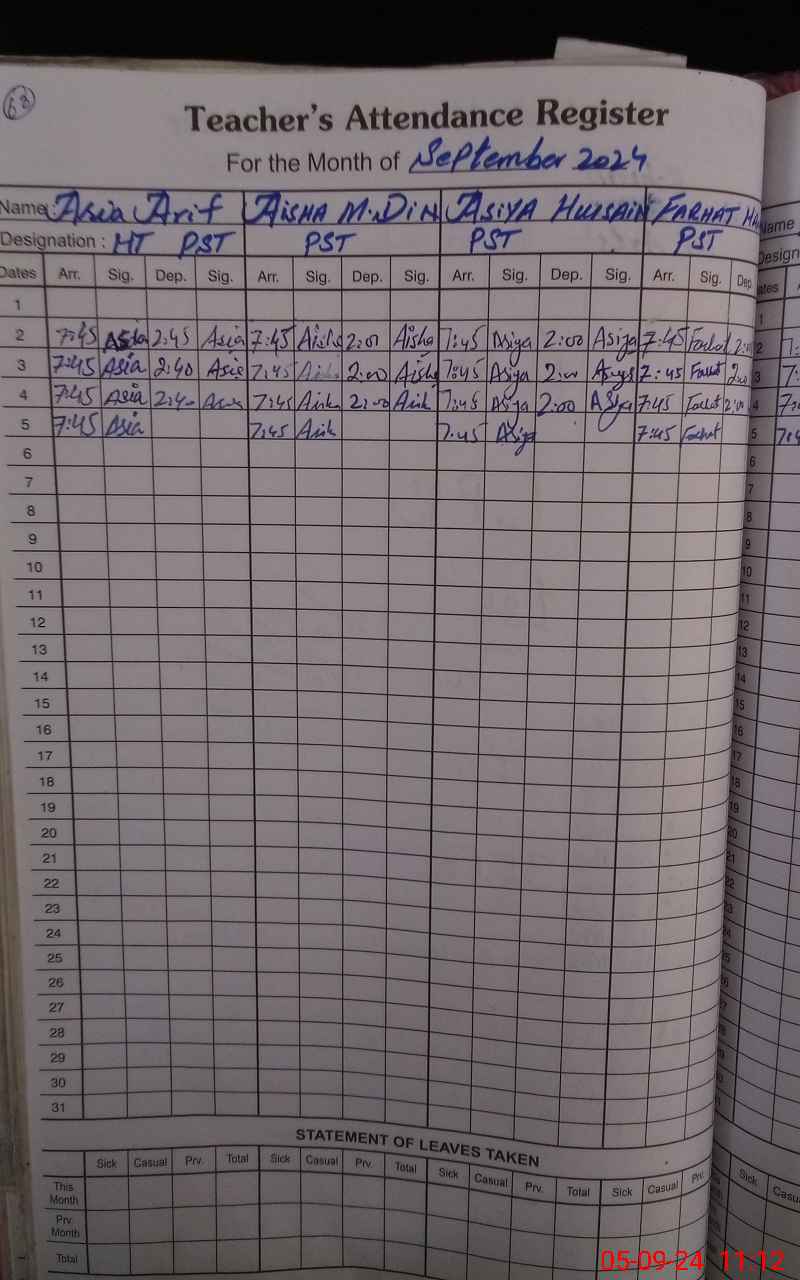 68
Teacher's Attendance Register
For the Month of September 2024
Name: Asia Arif AISHA M.DIN ASIYA HUSSAIN FARHAT Name
Designation : HT PST PST PST PST Design
Dates Arr. Sig. Dep. Sig. Arr. Sig. Dep. Sig. Arr. Sig. Dep. Sig. Arr. Sig. Dep.
1 1
2 7:45 Asia 2:45 Asia 7:45 Aisha 2:00 Aisha 7:45 Asiya 2:00 Asiya 7:45 Farhat 2:00 2
3 7:45 Asia 2:40 Asia 7:45 Aisha 2:00 Aisha 7:45 Asiya 2:00 Asiya 7:45 Farhat 2:00 3
4 7:45 Asia 2:40 Asia 7:45 Aish 2:00 Aish 7:45 Asiya 2:00 Asiya 7:45 Farhat 2:00 4
5 7:45 Asia 7:45 Aish 7:45 Asiya 7:45 Farhat 5
6 6
7 7
8 8
9 9
10 10
11 11
12 12
13 13
14 14
15 15
16 16
17 17
18 18
19 19
20 20
21 21
22 22
23 23
24 24
25
26
27
28
29
30
31
STATEMENT OF LEAVES TAKEN
Sick Casual Prv. Total Sick Casual Prv. Total Sick Casual Prv. Total Sick Casual Prv. Sick Casu
This
Month
Prv.
Month
Total
05-09-24 11:12